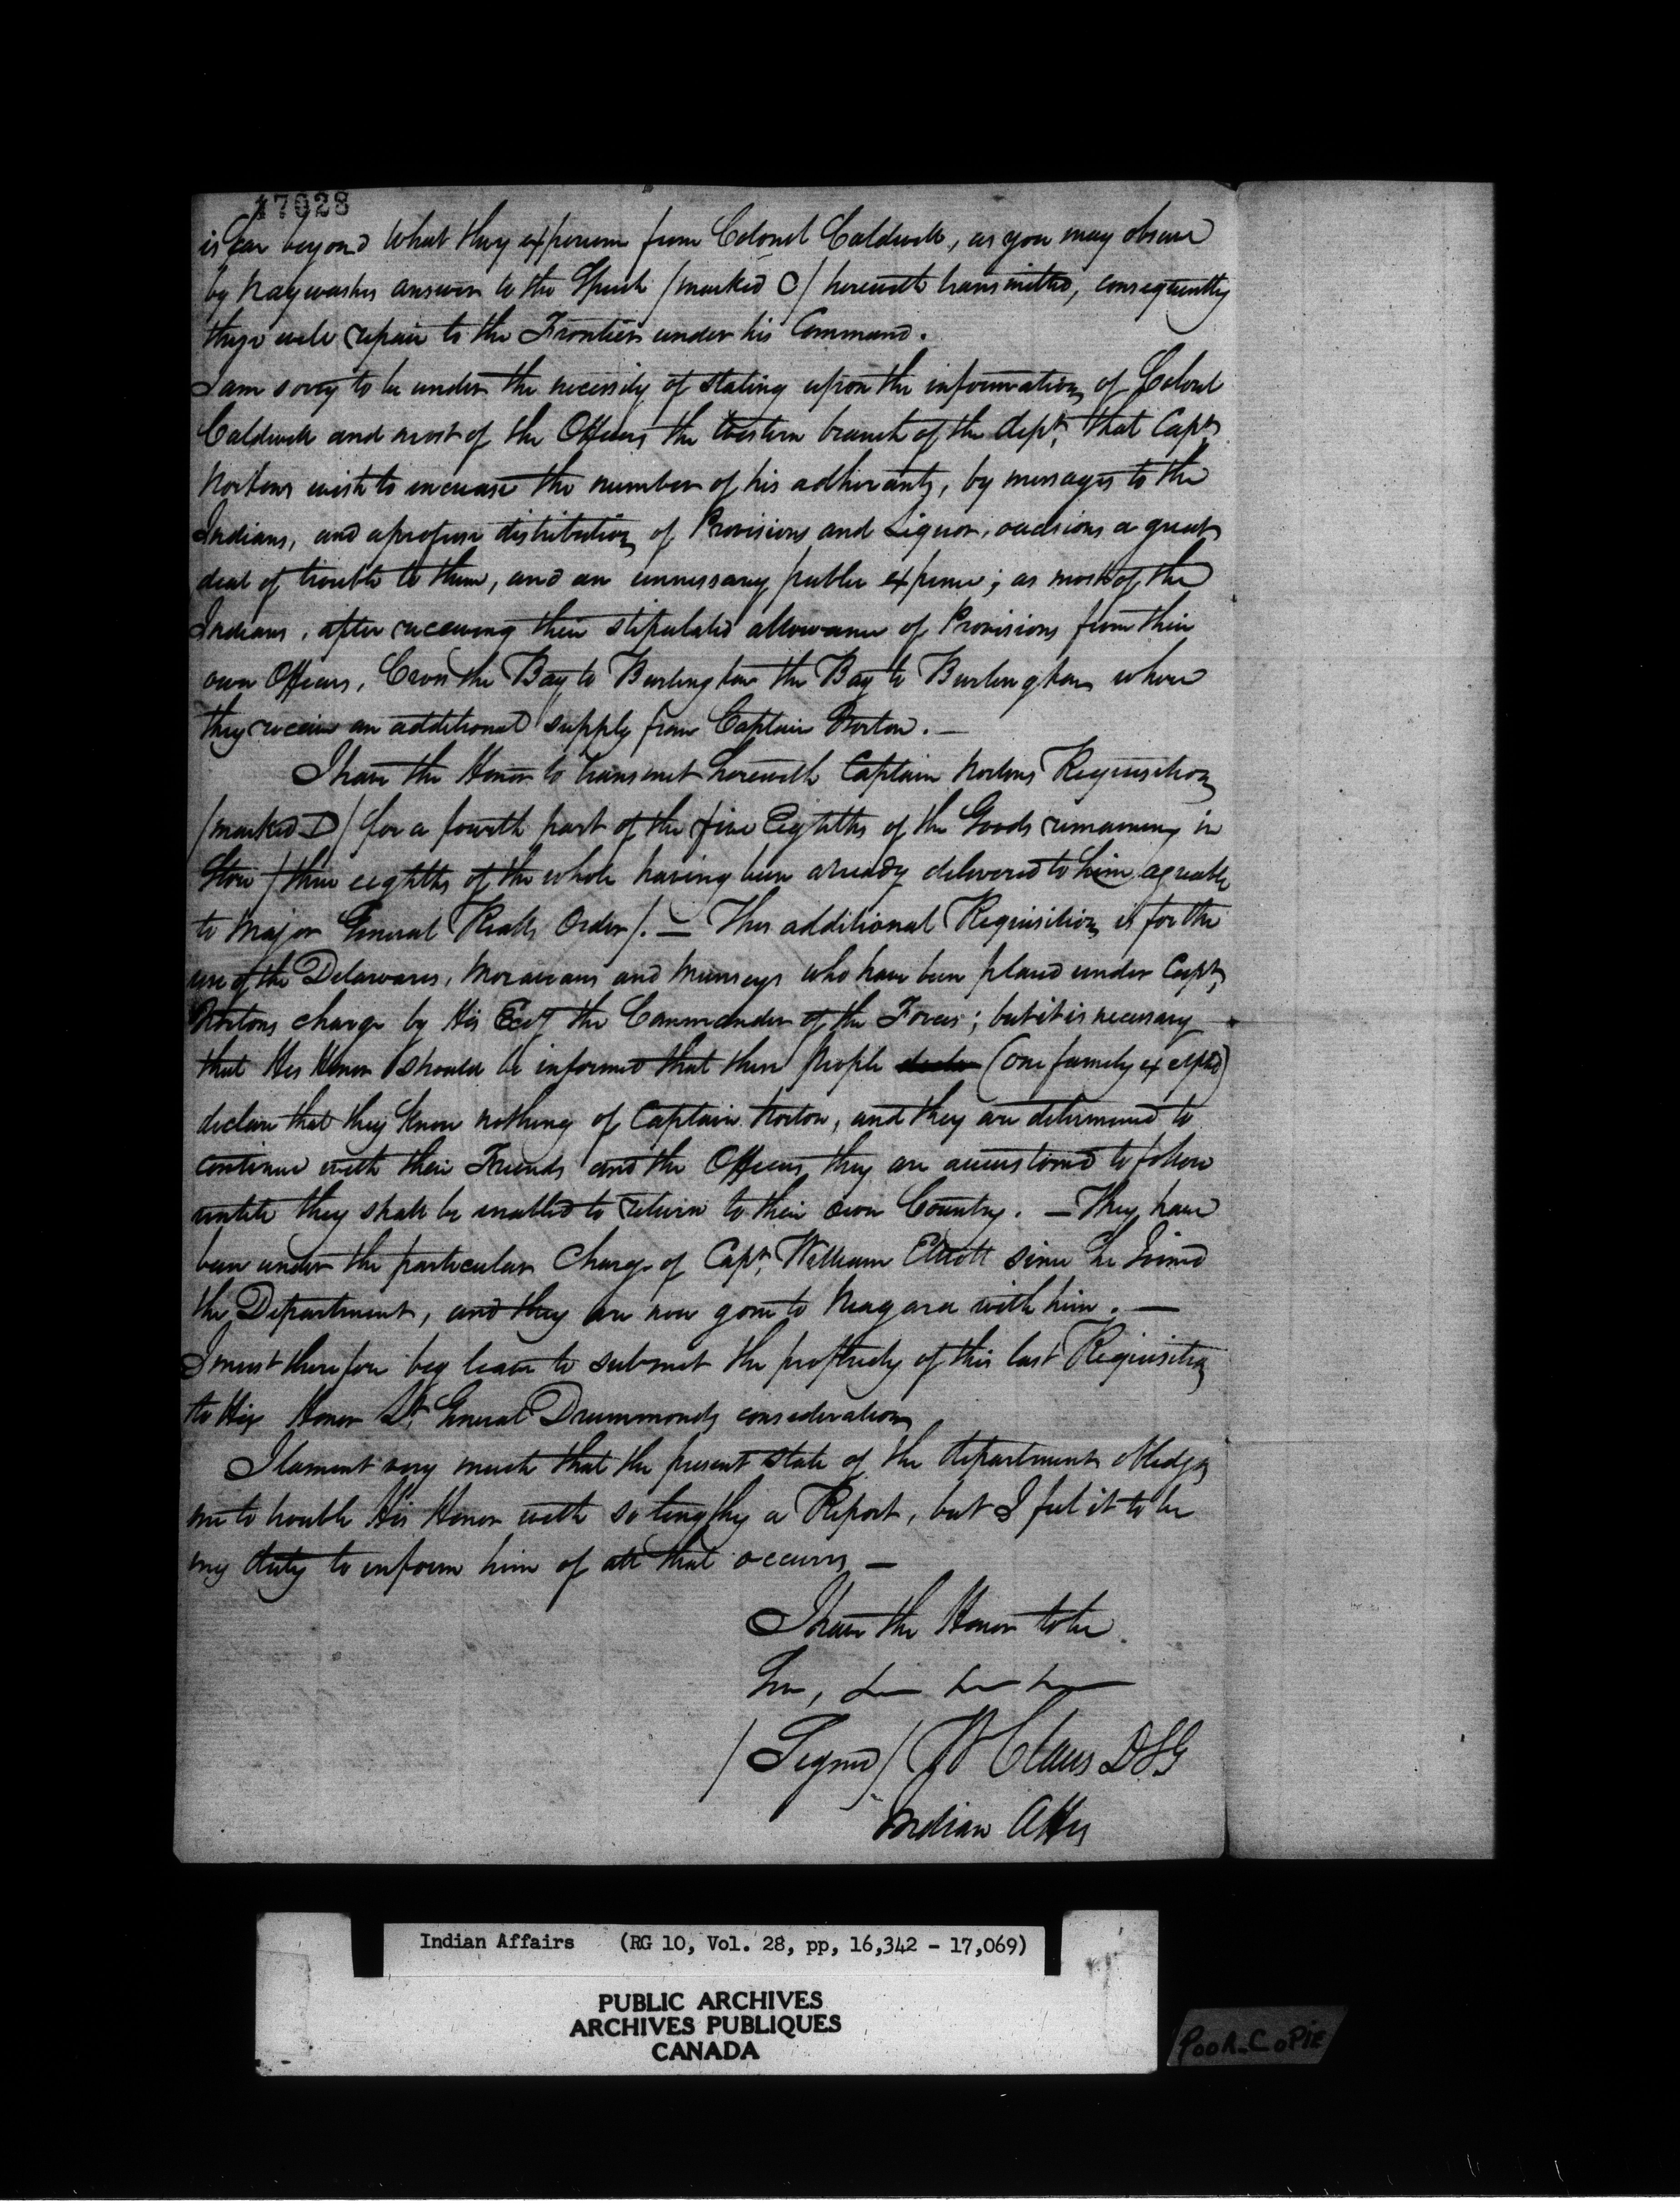 17028
is far beyond what they experience from Colonel Caldwell, as you may observe
by Naywashes answer to the Speech /marked C/ herewith transmitted, consequently
they will repair to the Frontier under his Command.
I am sorry to be under the necessity of stating upon the information of Colonel
Caldwell and most of the Officers the Western branch of the dept, that Capt
Nortons wish to increase the number of his adherants, by messages to the
Indians, and a profuse distribution of Provisions and Liquor, occasions a great
deal of trouble to them, and an unnessary public expence; as most of the
Indians, after receiving their stipulated allowance of Provisions from their
own Officers, Cross the Bay to Burlington the Bay to Burlington where
they receive an additional supply from Captain Norton. —
I have the Honor to transmit herewith Captain Nortons Requisition
/marked D/ for a fourth part of the five Eighths of the Goods remaining in
Store /three eighths of the whole having been already delivered to him agreable
to Major General Rialls Order/. — This additional Requisition is for the
use of the Delawares, Moravians and Munseys who have been placed under Capt
Nortons charge by His Excy the Commander of the Forces; but it is necessary
that His Honor should be informed that these People (one family excepted)
declare that they know nothing of Captain Norton, and they are determined to
continue with their Friends and the Officers they are accustomed to follow
untill they shall be enabled to return to their own Country. — They have
been under the particular Charge of Capt William Elliott since he Joined
the Department, and they are now gone to Niagara with him. —
I must therefore beg leave to submit the propriety of this last Requisition
to His Honor Lt General Drummonds consideration
I lament very much that the present state of the department obledges
me to trouble His Honor with so lengthy a Report, but I feel it to be
my duty to inform him of all that occurs —
I have the Honor to be
Sir,
/Signed/ W Claus DSG
Indian Affrs
Indian Affairs (RG 10, Vol. 28, pp, 16,342 - 17,069)
PUBLIC ARCHIVES
ARCHIVES PUBLIQUES
CANADA
POOR COPIE